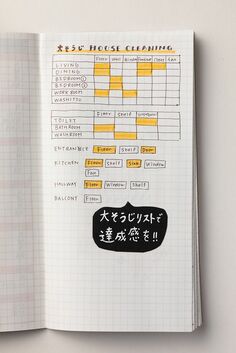 大そうじ HOUSE CLEANING
Floor Shelf Window Curtain Closet Fan
LIVING
DINING
BEDROOM①
BEDROOM②
WORK ROOM
WASHITSU
Floor Shelf Washbowl
TOILET
BATHROOM
WASHROOM
ENTRANCE Floor Shelf Door
KITCHEN Floor Shelf Sink Window
Fan
HALLWAY Floor Window Shelf
BALCONY Floor
大そうじリストで
達成感を!!